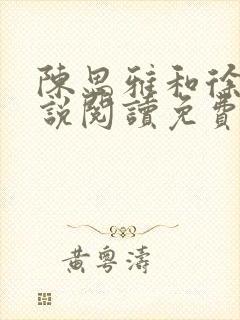 陳思雅和徐
說閱讀免費
黃粵濤